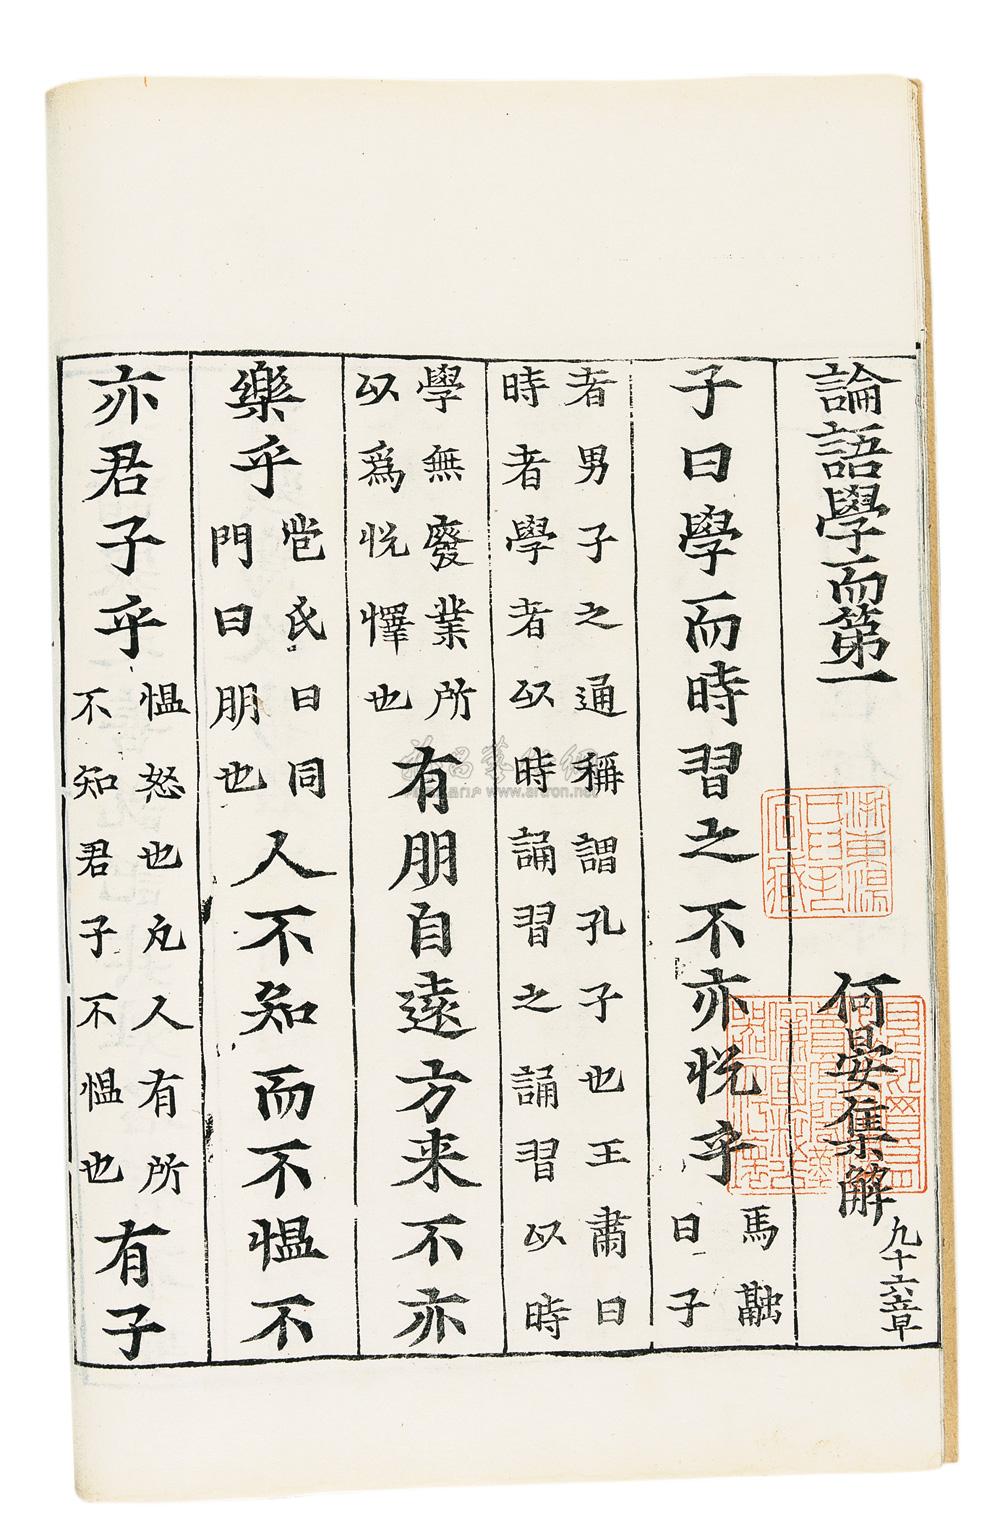 論語學而第一 何晏集解 凢十六章
子曰學而時習之不亦悅乎 馬融
曰子
者男子之通稱謂孔子也王肅曰
時者學者以時誦習之誦習以時
學無廢業所
以爲悅懌也
有朋自遠方来不亦
樂乎
苞氏曰同
門曰朋也
人不知而不愠不
亦君子乎
愠怒也凢人有所
不知君子不愠也
有子
www.artron.net